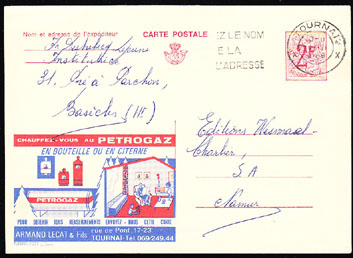 Nom et adresse de l'expéditeur
CARTE POSTALE
EZ LE NOM
E LA
L'ADRESSE
TOURNAI
2F
Institutrice
31, Pré à Parchon,
Basècles (Ht)
CHAUFFEZ-VOUS AU PETROGAZ
EN BOUTEILLE OU EN CITERNE
PETROGAZ
POUR OBTENIR TOUS RENSEIGNEMENTS ENVOYEZ-NOUS CETTE CARTE
ARMAND LECAT & Fils
rue de Pont, 17-23
TOURNAI-Tel 069/249.44
Editions Wesmael-
Charlier,
S A
Namur